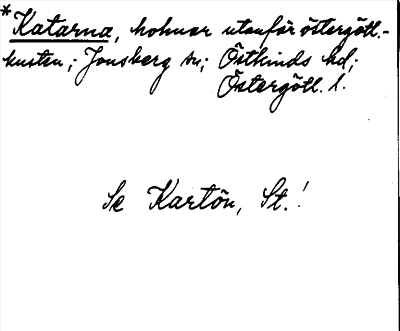 *Katarna, holmar utanför östergötl.-
kusten; Jonsberg sn; Östkinds hd;
Östergötl. l.
Se Kartön, St.!